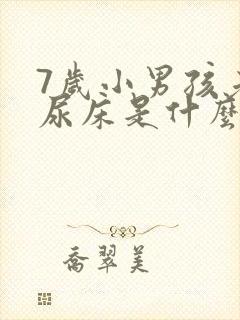 7歲小男孩
尿床是什麼
喬翠美